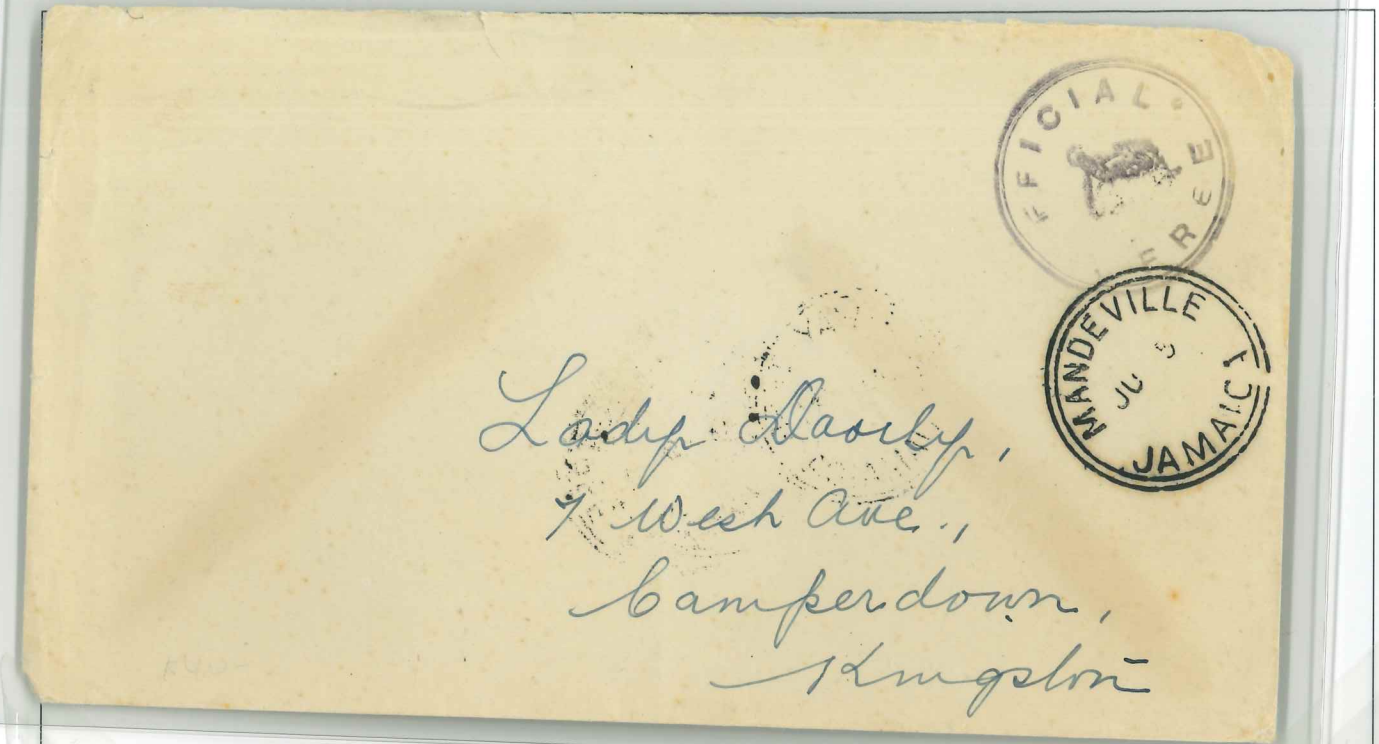 FFICIAL
FREE
MANDEVILLE
JU 5
JAMAIC
Lady
7 West Ave.,
Camperdown,
Kingston